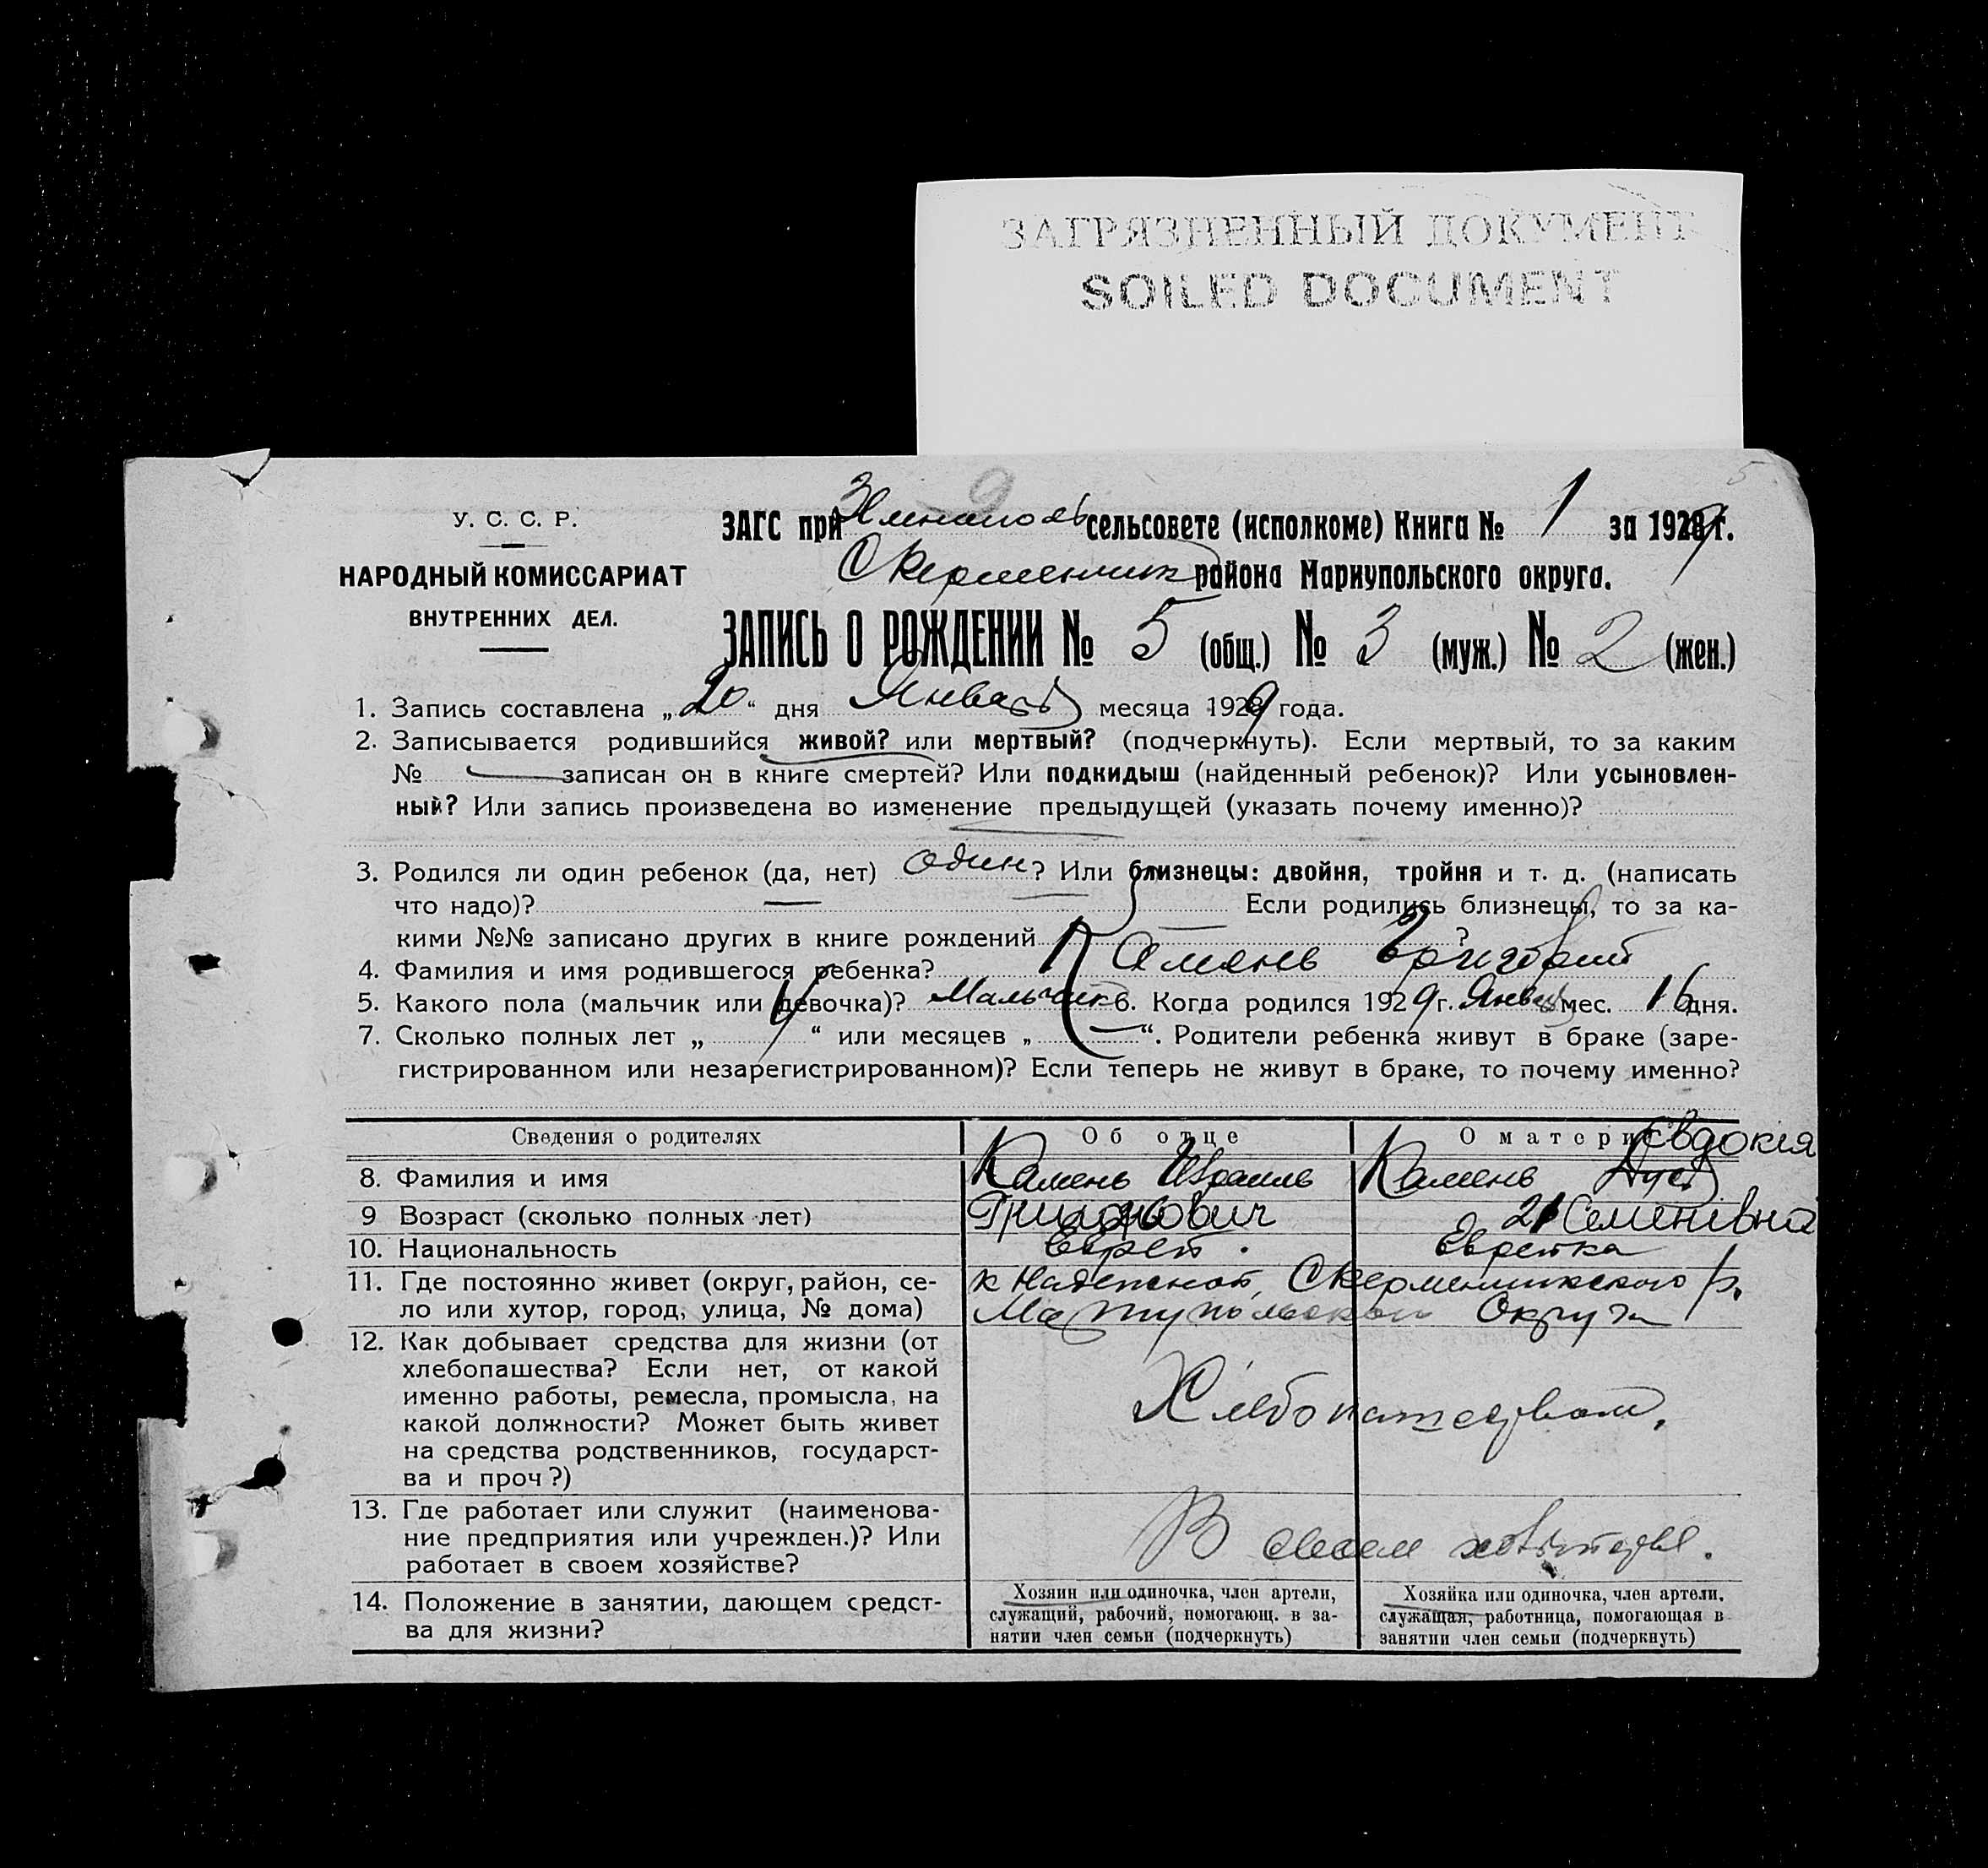 ЗАГРЯЗНЕННЫЙ ДОКУМЕНТ
SOILED DOCUMENT
5
У. С. С. Р.
НАРОДНЫЙ КОМИССАРИАТ
ВНУТРЕННИХ ДЕЛ.
ЗАГС при сельсовете (исполкоме) Книга № 1 за 1929 г.
района Мариупольского округа.
ЗАПИСЬ О РОЖДЕНИИ № 5 (общ.) № 3 (муж.) № 2 (жен.)
1. Запись составлена „20“ дня Января месяца 1929 года.
2. Записывается родившийся живой? или мертвый? (подчеркнуть). Если мертвый, то за каким
№ — записан он в книге смертей? Или подкидыш (найденный ребенок)? Или усыновлен-
ный? Или запись произведена во изменение предыдущей (указать почему именно)?
3. Родился ли один ребенок (да, нет) один? Или близнецы: двойня, тройня и т. д. (написать
что надо)? — Если родились близнецы, то за ка-
кими №№ записано других в книге рождений — ?
4. Фамилия и имя родившегося ребенка? Камень Григорий
5. Какого пола (мальчик или девочка)? Мальчик 6. Когда родился 1929 г. Января мес. 16 дня.
7. Сколько полных лет „ “ или месяцев „ — “. Родители ребенка живут в браке (заре-
гистрированном или незарегистрированном)? Если теперь не живут в браке, то почему именно?
Сведения о родителях Об отце О матери Євдокія
8. Фамилия и имя Камень Израиль Камень
9 Возраст (сколько полных лет) Григорович 21 Семенівна
10. Национальность Еврей. Еврейка
11. Где постоянно живет (округ, район, се-
ло или хутор, город, улица, № дома)
к Надежной, р.
Мариупольской Округи
12. Как добывает средства для жизни (от
хлебопашества? Если нет, от какой
именно работы, ремесла, промысла, на
какой должности? Может быть живет
на средства родственников, государст-
ва и проч?)
Хлебопашеством.
13. Где работает или служит (наименова-
ние предприятия или учрежден.)? Или
работает в своем хозяйстве?
В своем хозяйстве.
14. Положение в занятии, дающем средст-
ва для жизни?
Хозяин или одиночка, член артели,
служащий, рабочий, помогающ. в за-
нятии член семьи (подчеркнуть)
Хозяйка или одиночка, член артели,
служащая, работница, помогающая в
занятии член семьи (подчеркнуть)